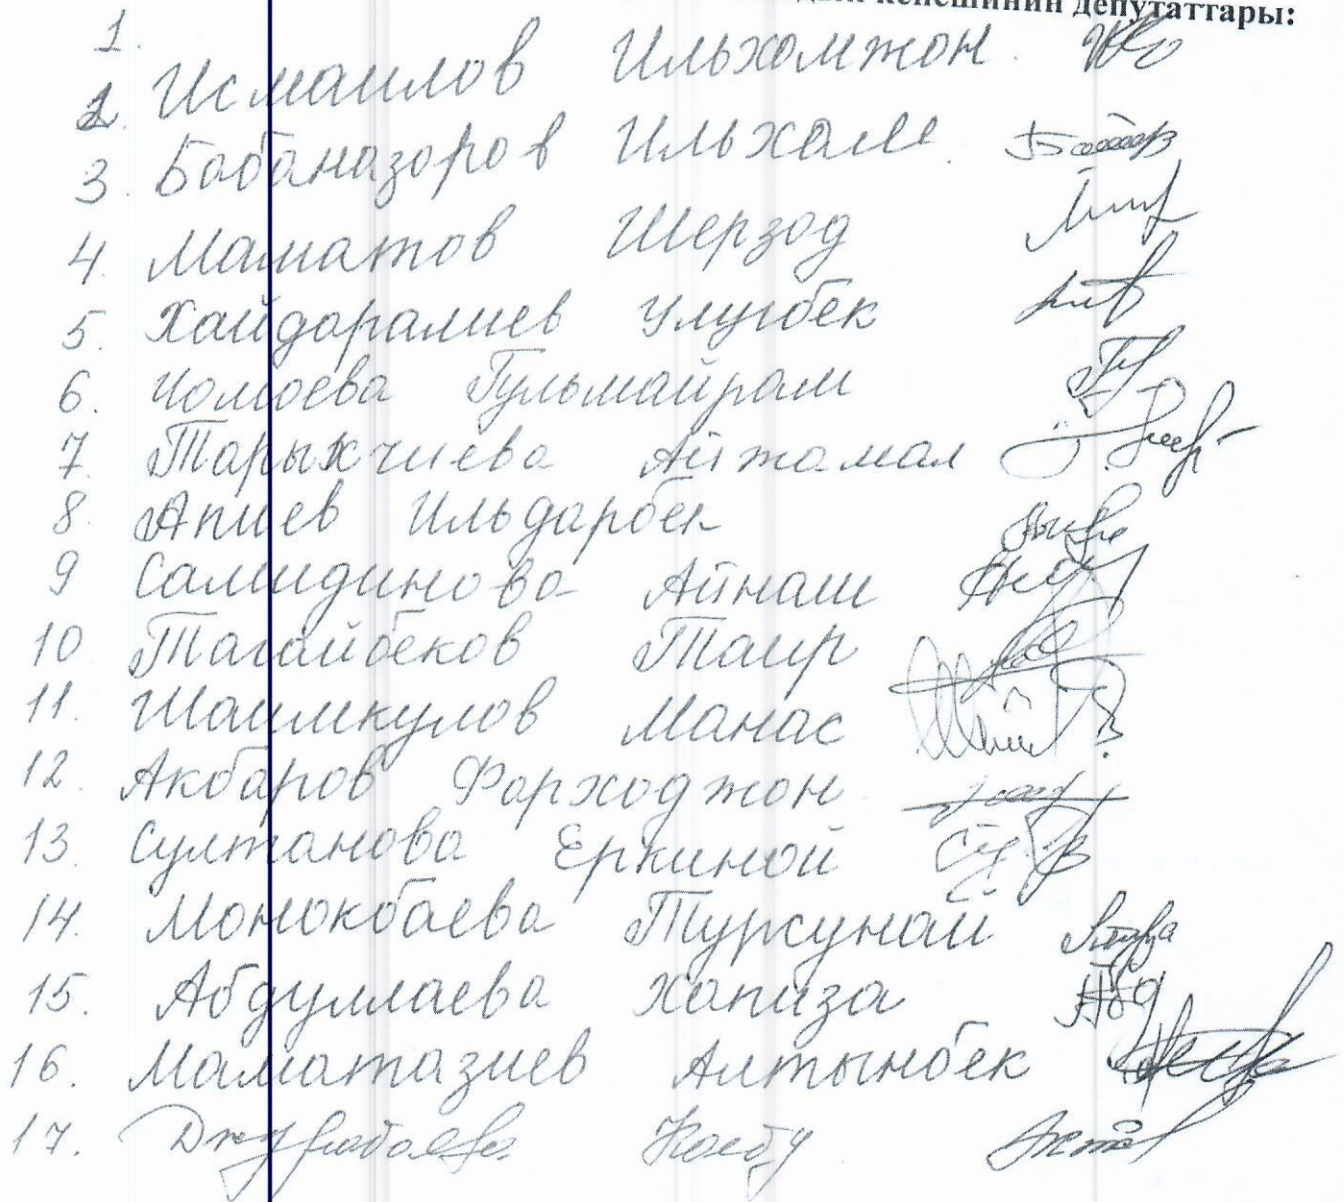 кеңешинин депутаттары:
1.
2. Исмаилов Ильхомжон
3. Бабаназаров Ильхам
4. Маматов Шерзод
5. Хайдаралиев Улугбек
6. Чолпоева Гульмайрам
7. Тарыкчиева Айжамал
8. Апиев Ильдарбек
9 Самидинова Айнаш
10 Тагайбеков Таир
11. Шаимкулов Манас
12. Акбаров Фарходжон
13. Султанова Еркиной
14. Монокбаева Турсунай
15. Абдуллаева Хапиза
16. Маматазиев Алтынбек
17.